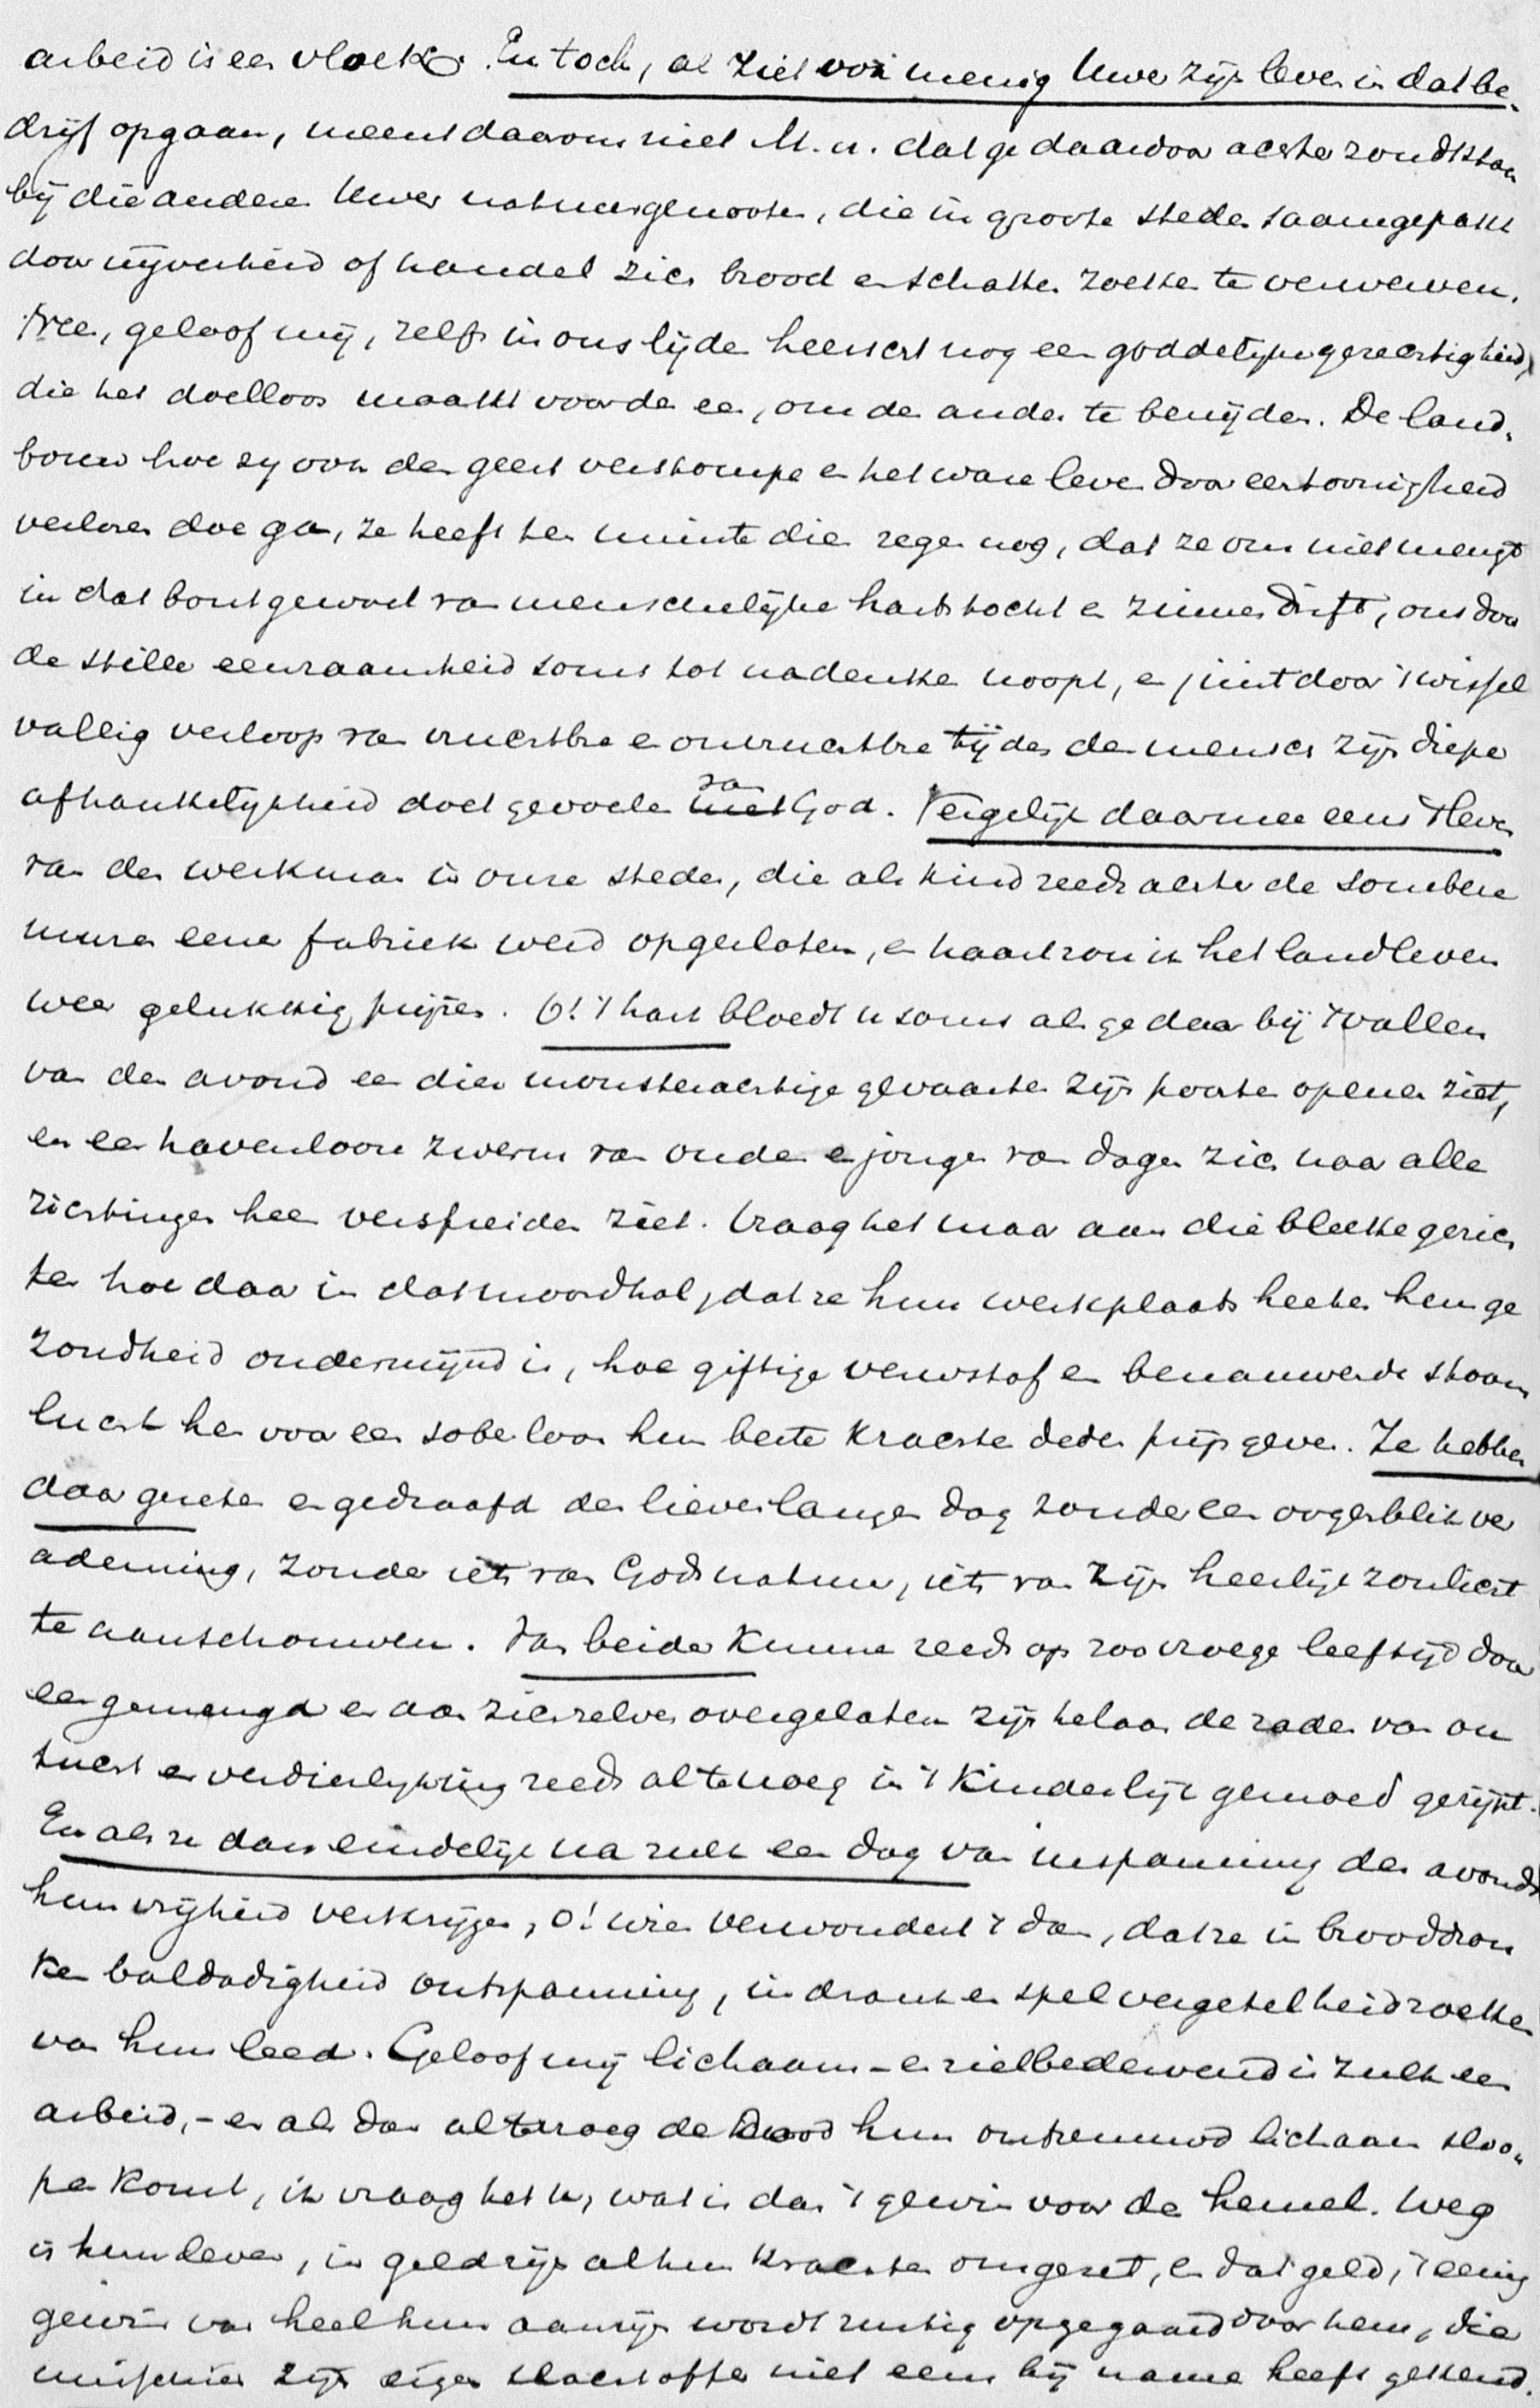 arbeid is een vloek. En toch, al ziet ook menig Uwer zijn leven in dat be-
drijf opgaan, meent daarom niet M. v. dat ge daardoor achter zoudt staan
bij die andere Uwer natuurgenooten, die in groote steden saamgepakt
door nijverheid of handel zich brood en schatten zoeken te verwerven.
Nee, geloof mij, zelfs in ons lijden heerscht nog een goddelijke gerechtigheid,
die het doelloos maakt voor den een, om den ander te benijden. De land-
bouw hoe zij ook den geest verstompe en het ware leven door eentoonigheid
verloren doe gaan, ze heeft ten minste dien zegen nog, dat ze ons niet mengt
in dat bont gewoel van menschelijke hartstocht en zinnendrift, ons door
de stille eenzaamheid soms tot nadenken noopt, en juist door 't wissel
vallig verloop van vruchtbre en onvruchtbre tijden den mensch zijn diepe
afhankelijkheid doet gevoelen van God. Vergelijk daarmee eens 't leven
van den werkman in onze steden, die als kind reeds achter de sombere
muren eener fabriek werd opgesloten, en haast zou ik het landleven
weer gelukkig prijzen. O! 't hart bloedt u soms als ge daar bij 't vallen
van den avond een dier monsterachtige gevaarten zijn poorten openen ziet,
en een havenloozen zwerm van ouden en jongen van dagen zich naar alle
richtingen heen verspreiden ziet. Vraag het maar aan die bleeke gezich
ten hoe daar in dat moordhol, dat ze hun werkplaats heeten hun ge
zondheid ondermijnd is, hoe giftige verwstof en benauwende stoom
lucht hen voor een sober loon hun beste krachten deden prijs geven. Ze hebben
daar gezeten en gedraafd den lieven langen dag zonder een oogenblik ver
ademing, zonder iets van Gods natuur, iets van zijn heerlijk zonlicht
te aanschouwen. Van beider kunne reeds op zoo vroege leeftijd door
een gemengd en aan zichzelven overgelaten zijn helaas de zaden van on
tucht en verdierlijking reeds al te vroeg in 't kinderlijk gemoed gerijpt.
En als ze dan eindelijk na zulk een dag van inspanning des avonds
hun vrijheid verkrijgen, o! wien verwondert 't dan, dat ze in brooddron
ken baldadigheid ontspanning, in drank en spel vergetelheid zoeken
van hun leed. Geloof mij lichaam- en zielbedervend is zulk een
arbeid, - en als dan al te vroeg de dood hun ontzenuwd lichaam sloo-
pen komt, ik vraag het u, wat is dan 't gewin voor den hemel. Weg
is hun leven, in geld zijn al hun krachten omgezet, en dat geld, 't eenig
gewin van heel hun aanzijn wordt rustig opgegaard door hem, die
misschien zijn eigen slachtoffer niet eens bij name heeft gekend.